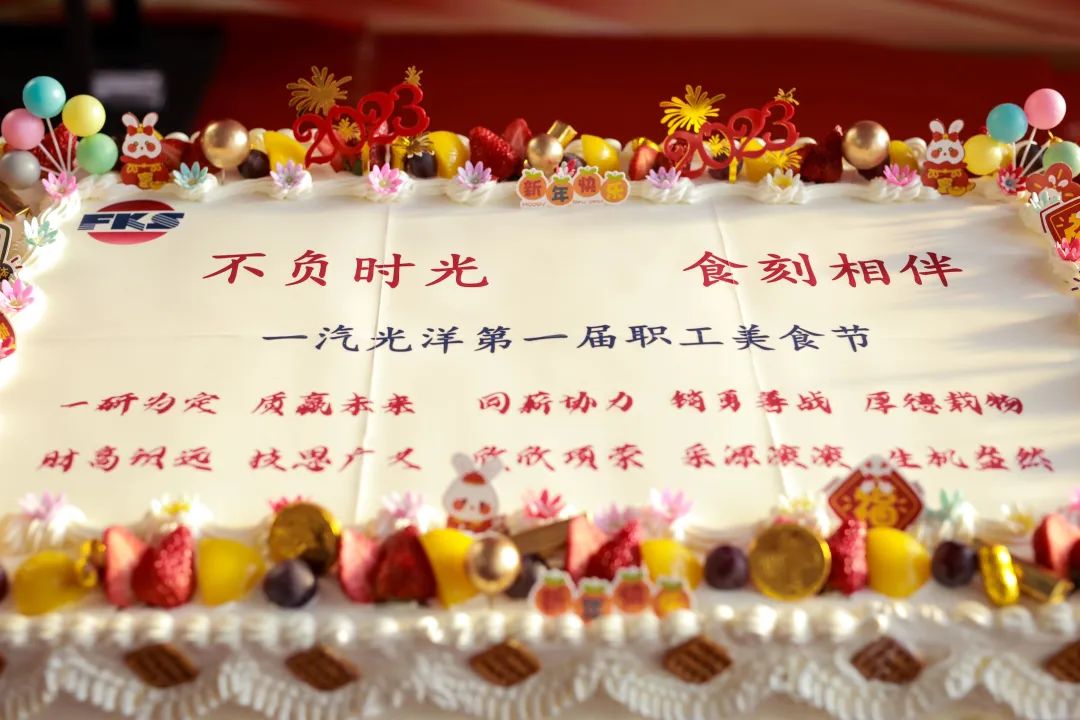 2023
2023
新年快乐
FKS
不负时光 食刻相伴
一汽光洋第一届职工美食节
一研为定 质赢未来 同薪协力 销勇善战 厚德载物
财高识远 技思广义 欣欣项荣 采源滚滚 生机盎然
福